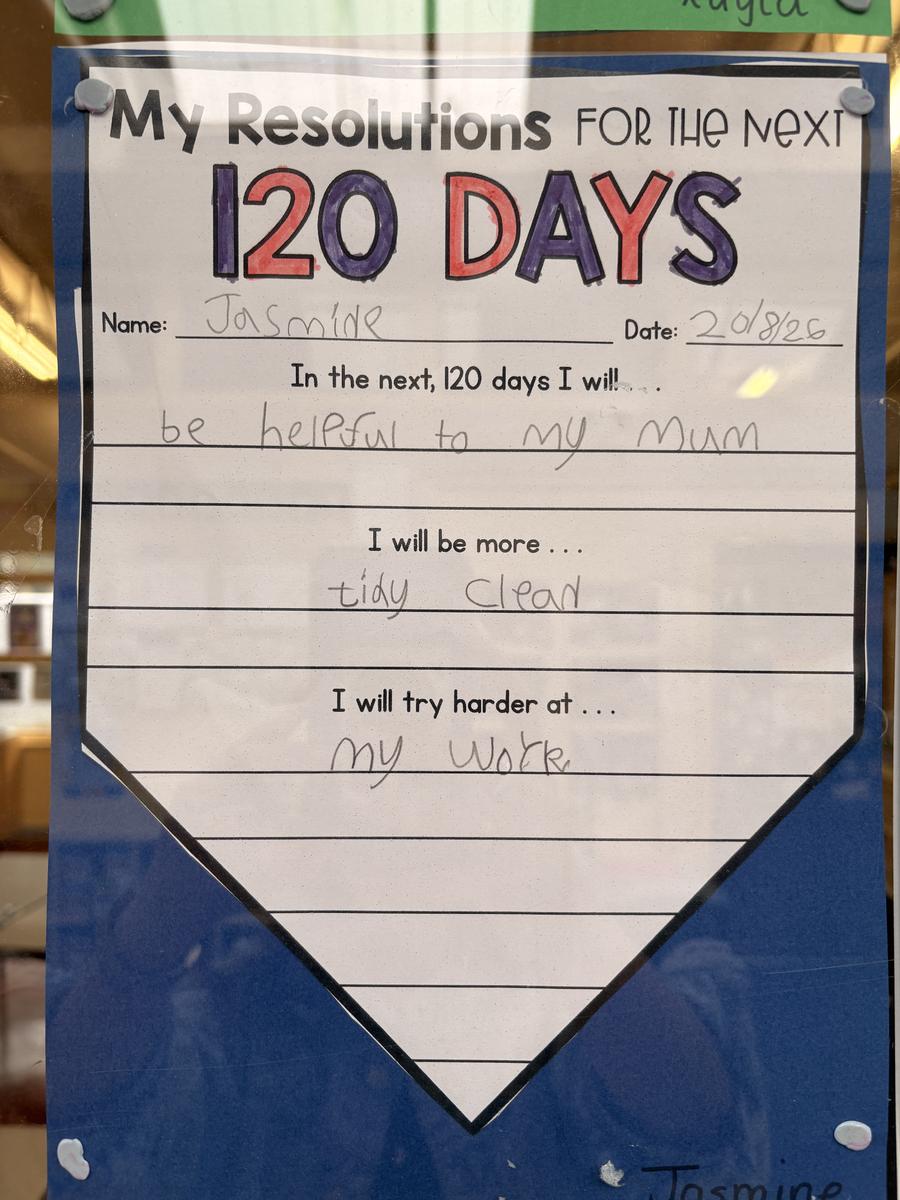 Kayla
My Resolutions FOR THE NEXT
120 DAYS
Name: Jasmine Date: 20/8/26
In the next, 120 days I will . . .
be helpful to my Mum
I will be more . . .
tidy clean
I will try harder at . . .
my work
Jasmine